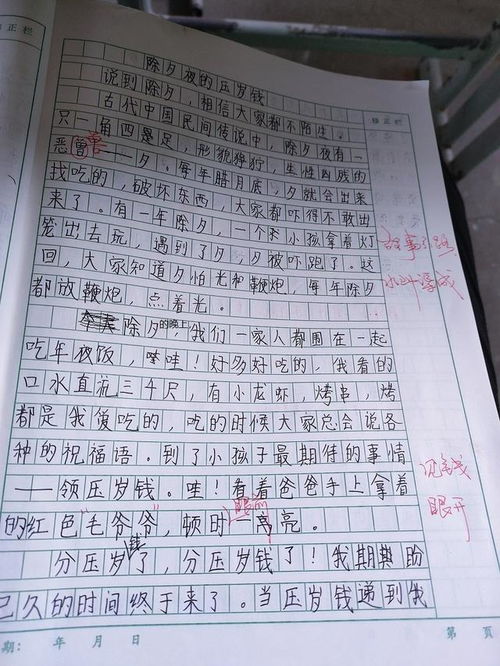 修正栏
除夕夜的压岁钱
说到除夕，相信大家都不陌生。
古代中国民间传说中，除夕夜有一
只一角四是足，形貌狰狞，生性凶残的
恶兽——夕。每年腊月底，夕就会出来
找吃的，破坏东西，大家都吓得不敢出
来了。有一年除夕，一个小孩拿着灯
笼出去玩，遇到了夕，夕被吓跑了。这
回，大家知道夕怕光和鞭炮，每年除夕
都放鞭炮，点着光。
故事引路
除夕的晚上，我们一家人都围在一起
吃年夜饭，哇哇！好多好吃的，我看的
口水直流三千尺，有小龙虾，烤串，烤
都是我爱吃的，吃的时候大家总会说各
种的祝福语。到了小孩子最期待的事情
——领压岁钱。哇！看着爸爸手上拿着
的红色"毛爷爷"，顿时眼前一亮亮。
见钱
眼开
分压岁钱了，分压岁钱了！我期期盼
已久的时间终于来了。当压岁钱递到我
期： 年 月 日
第 页